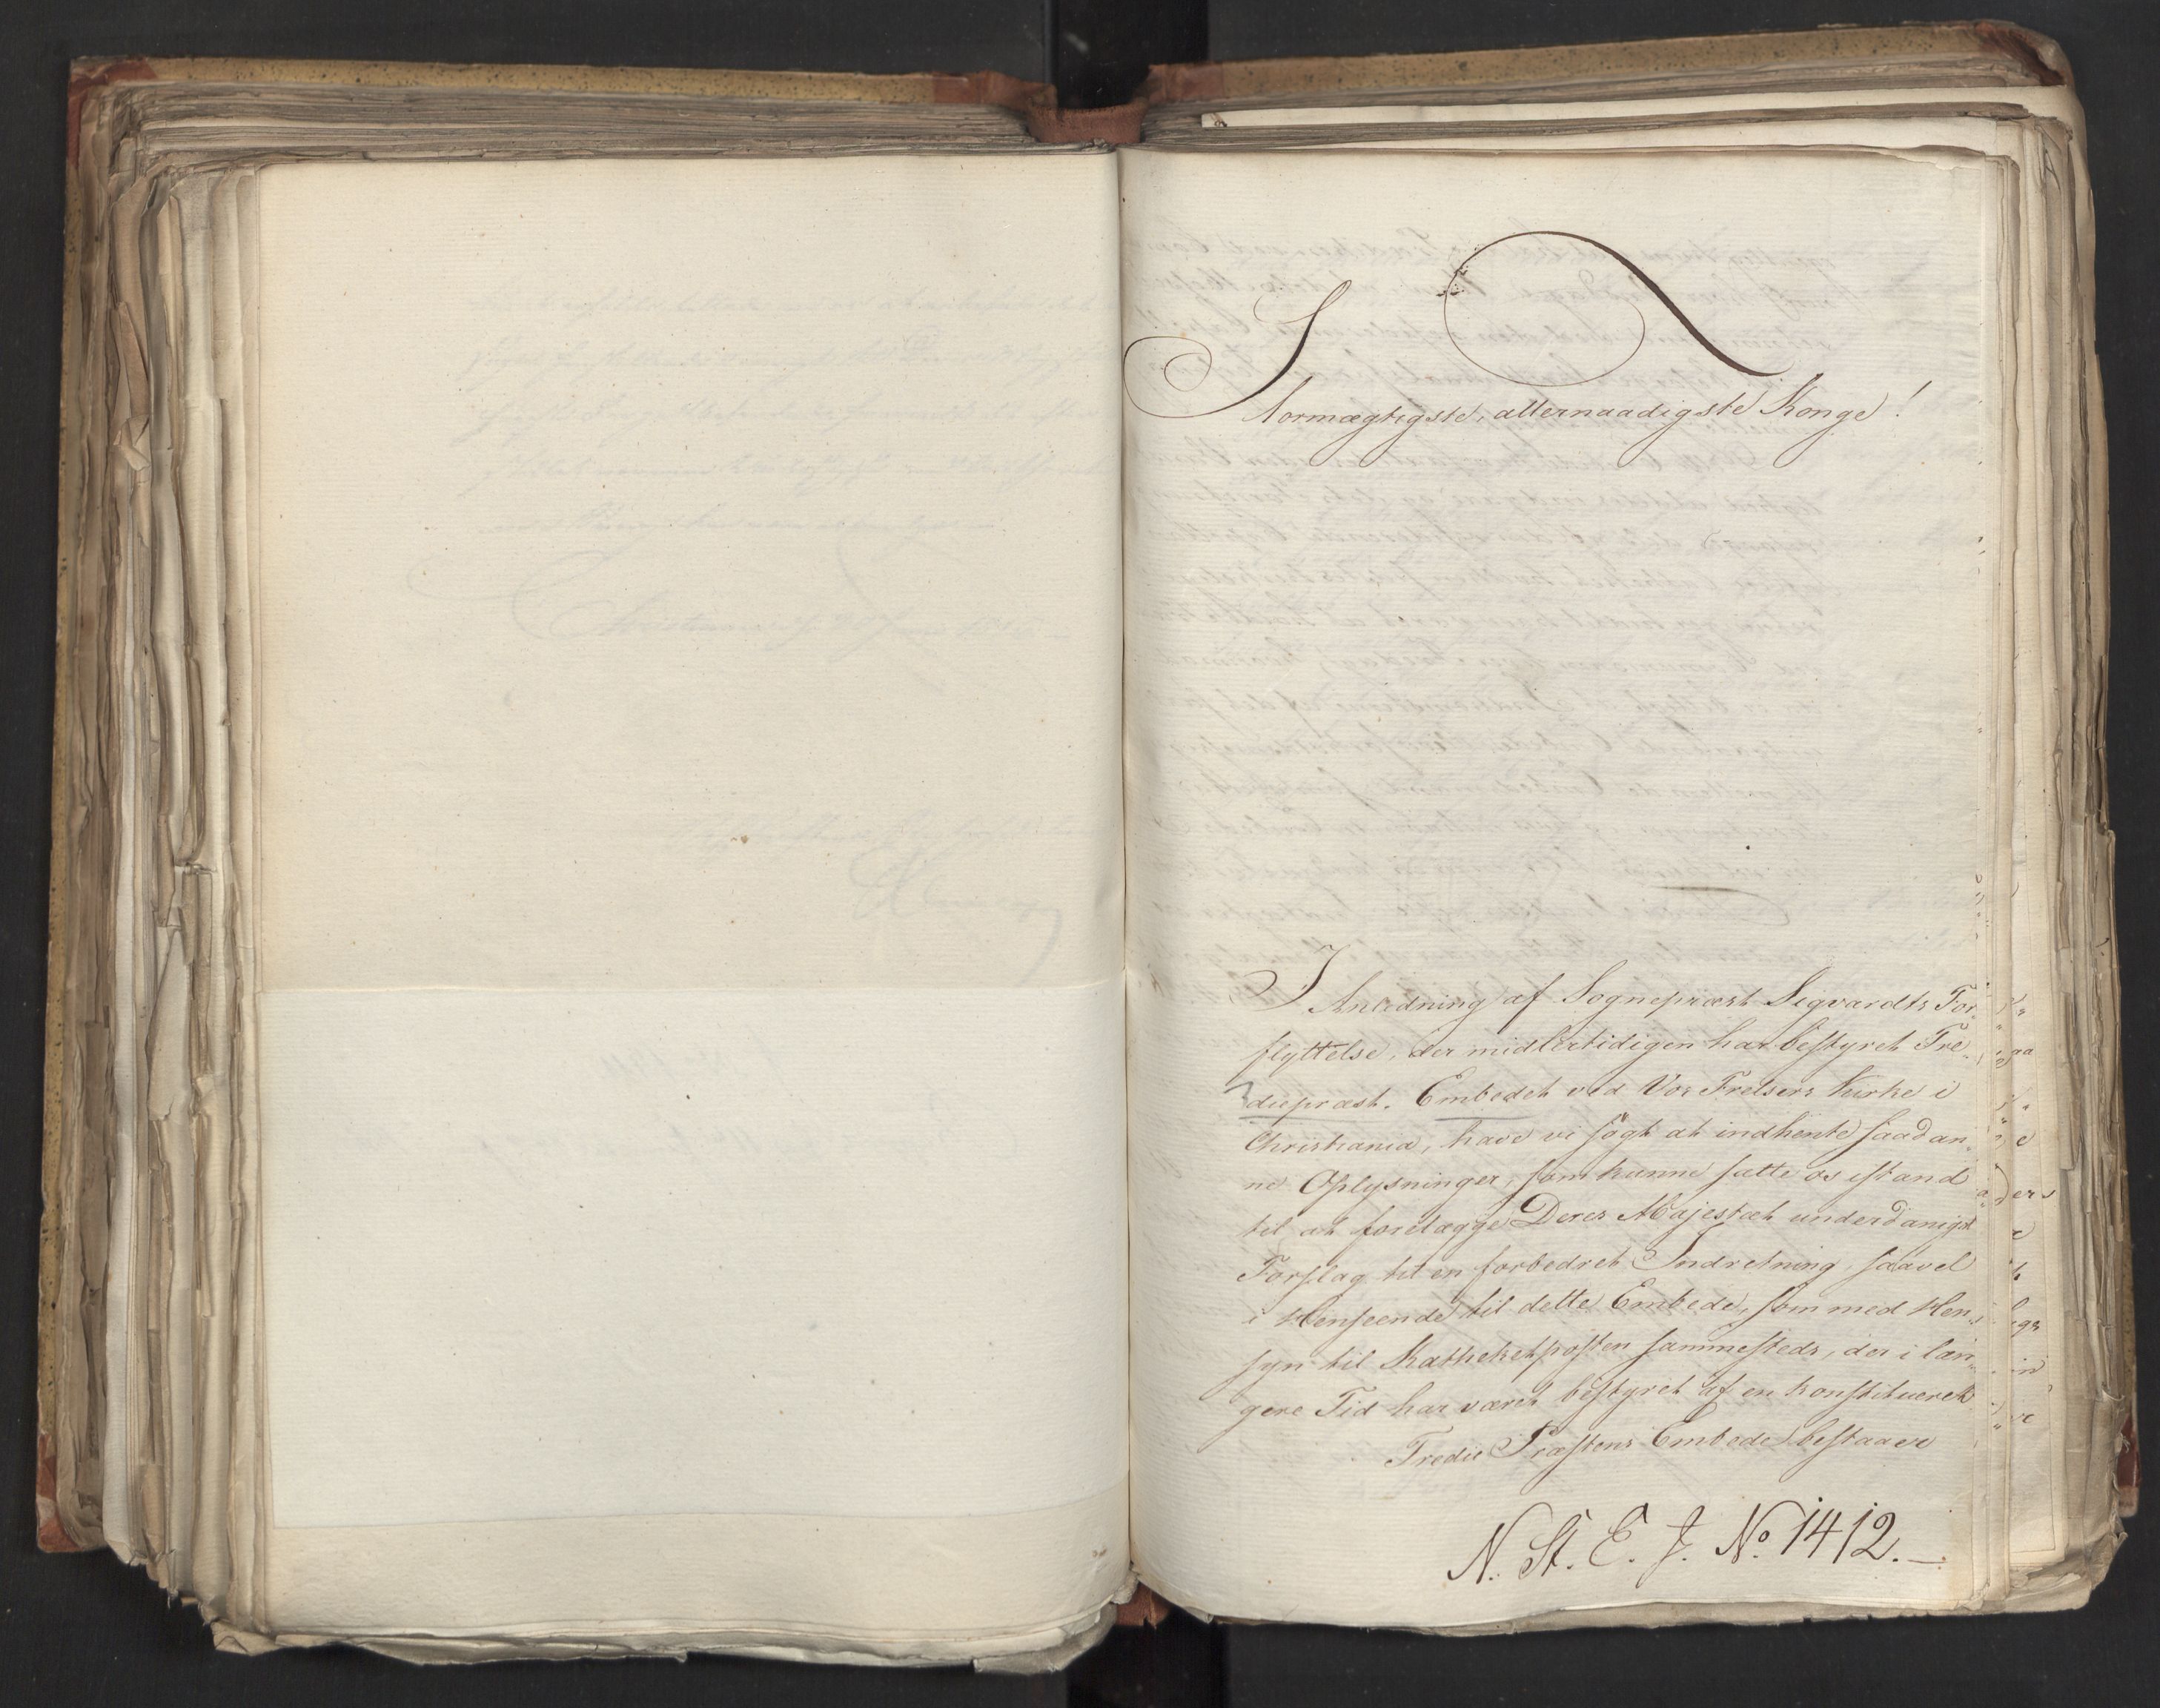 Stormægtigste, allernaadigste Konge!
I Anledning af Sognepræst Sigvardts For-
flyttelse, der midlertidigen har bestyret Tre-
diepræst-Embedet ved Vor Frelsers Kirke i
Christiania, have vi søgt at indhente saadan-
ne Oplysninger, som kunne sætte os istand
til at forelægge Deres Majestæt underdanigst
Forslag til en forbedret Indretning, saavel
i Henseende til dette Embede, som med Hen-
syn til Katheketposten sammesteds, der i læn-
gere Tid har været bestyret af en konstitueret
Tredie Præstens Embede bestaaer
N. St. E. J. No. 1412.